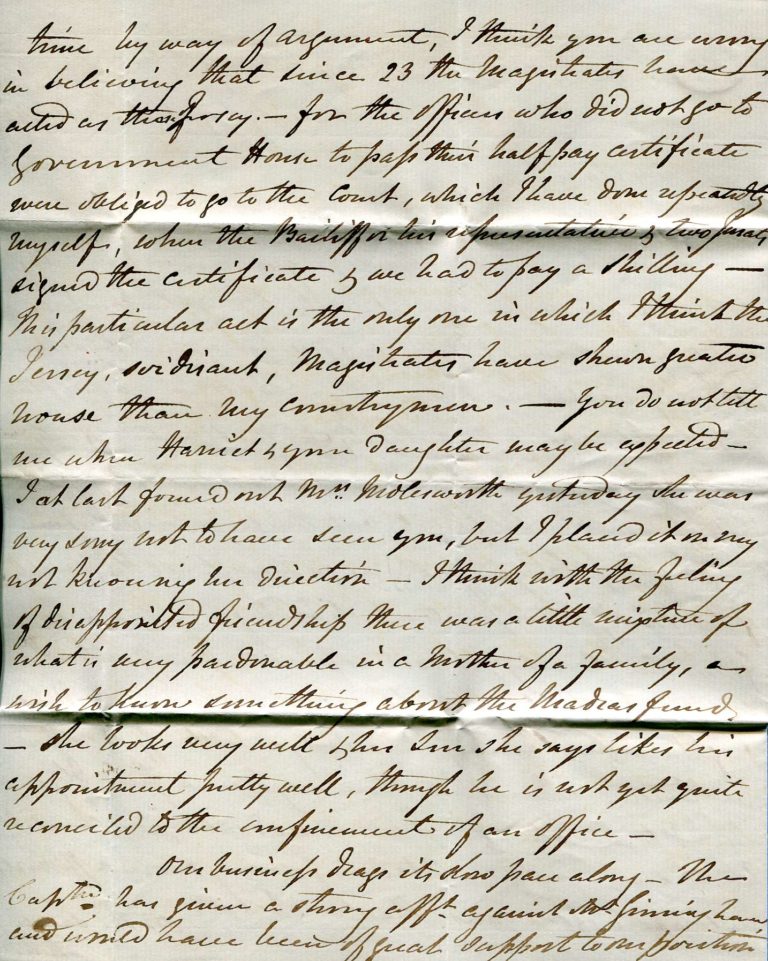 time by way of argument, I think you are wrong
in believing that since 23 the Magistrates have
acted as those Jersey. — for the officers who did not go to
Government House to pass their half pay certificate
were obliged to go to the Court, which I have done repeatedly
myself, when the Bailiff or his representative & two Jurats
signed the certificate & we had to pay a shilling —
This particular act is the only one in which I think the
Jersey, soidisant, Magistrates have shewn greater
nouse than my countrymen. — You do not tell
me when Harriet & your daughter may be expected —
I at last found out Mrs. Molesworth yesterday she was
very sorry not to have seen you, but I placed it on my
not knowing her direction — I think with the feeling
of disappointed friendship there was a little mixture of
what is very pardonable in a Mother of a family, a
wish to know something about the Madras fund.
— she looks very well & her son she says likes his
appointment pretty well, though he is not yet quite
reconciled to the confinement of an office —
Our business drags its slow pace along — The
has given a strong afft. against Mr. Ginningham
and would have been of great support to our position